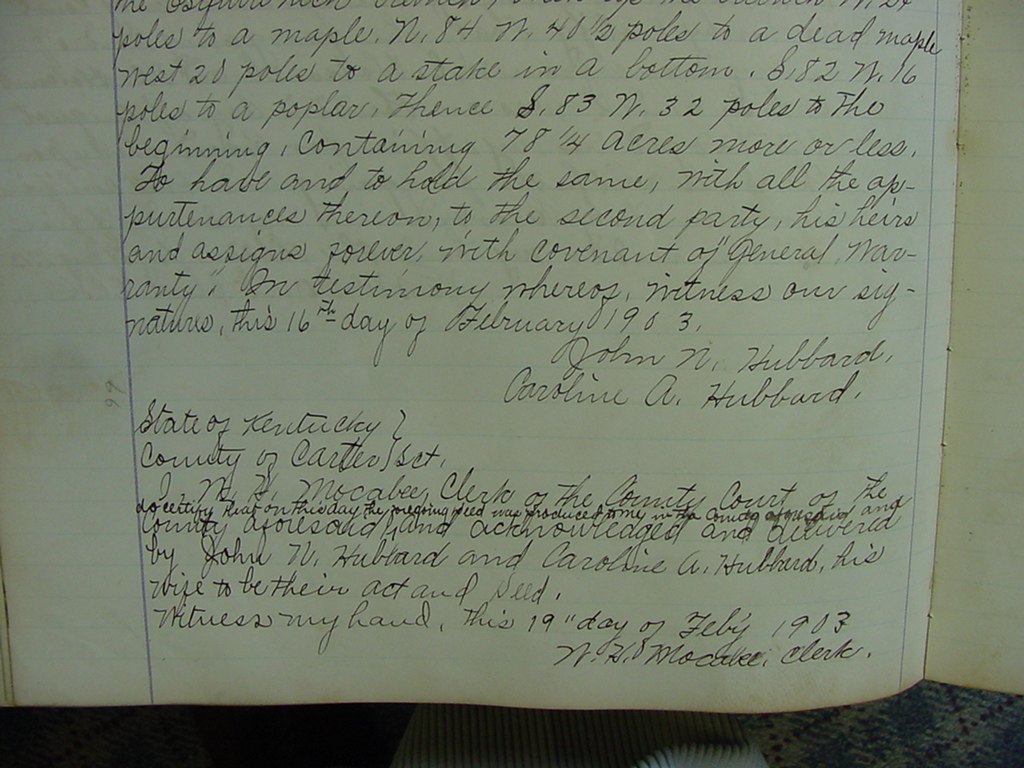 poles to a maple. N. 84 W. 40 1/2 poles to a dead maple
West 20 poles to a stake in a bottom. S. 82 W. 16
poles to a poplar, thence S. 83 W. 32 poles to the
beginning, containing 78 1/4 acres more or less.
To have and to hold the same, with all the ap-
purtenances thereon, to the second party, his heirs
and assigns forever, with covenant of "General War-
ranty". In testimony whereof, witness our sig-
natures, this 16th day of February 1903.
John N. Hubbard.
Caroline A. Hubbard.
State of Kentucky }
County of Carter } Sct.
I, W. H. Mocabee, Clerk of the County Court of the
do certify that on this day the foregoing deed was produced to me in the County aforesaid and
County aforesaid, and acknowledged and delivered
by John N. Hubbard and Caroline A. Hubbard, his
wife to be their act and deed.
Witness my hand, this 19" day of Feb'y 1903
W. H. Mocabee, Clerk.